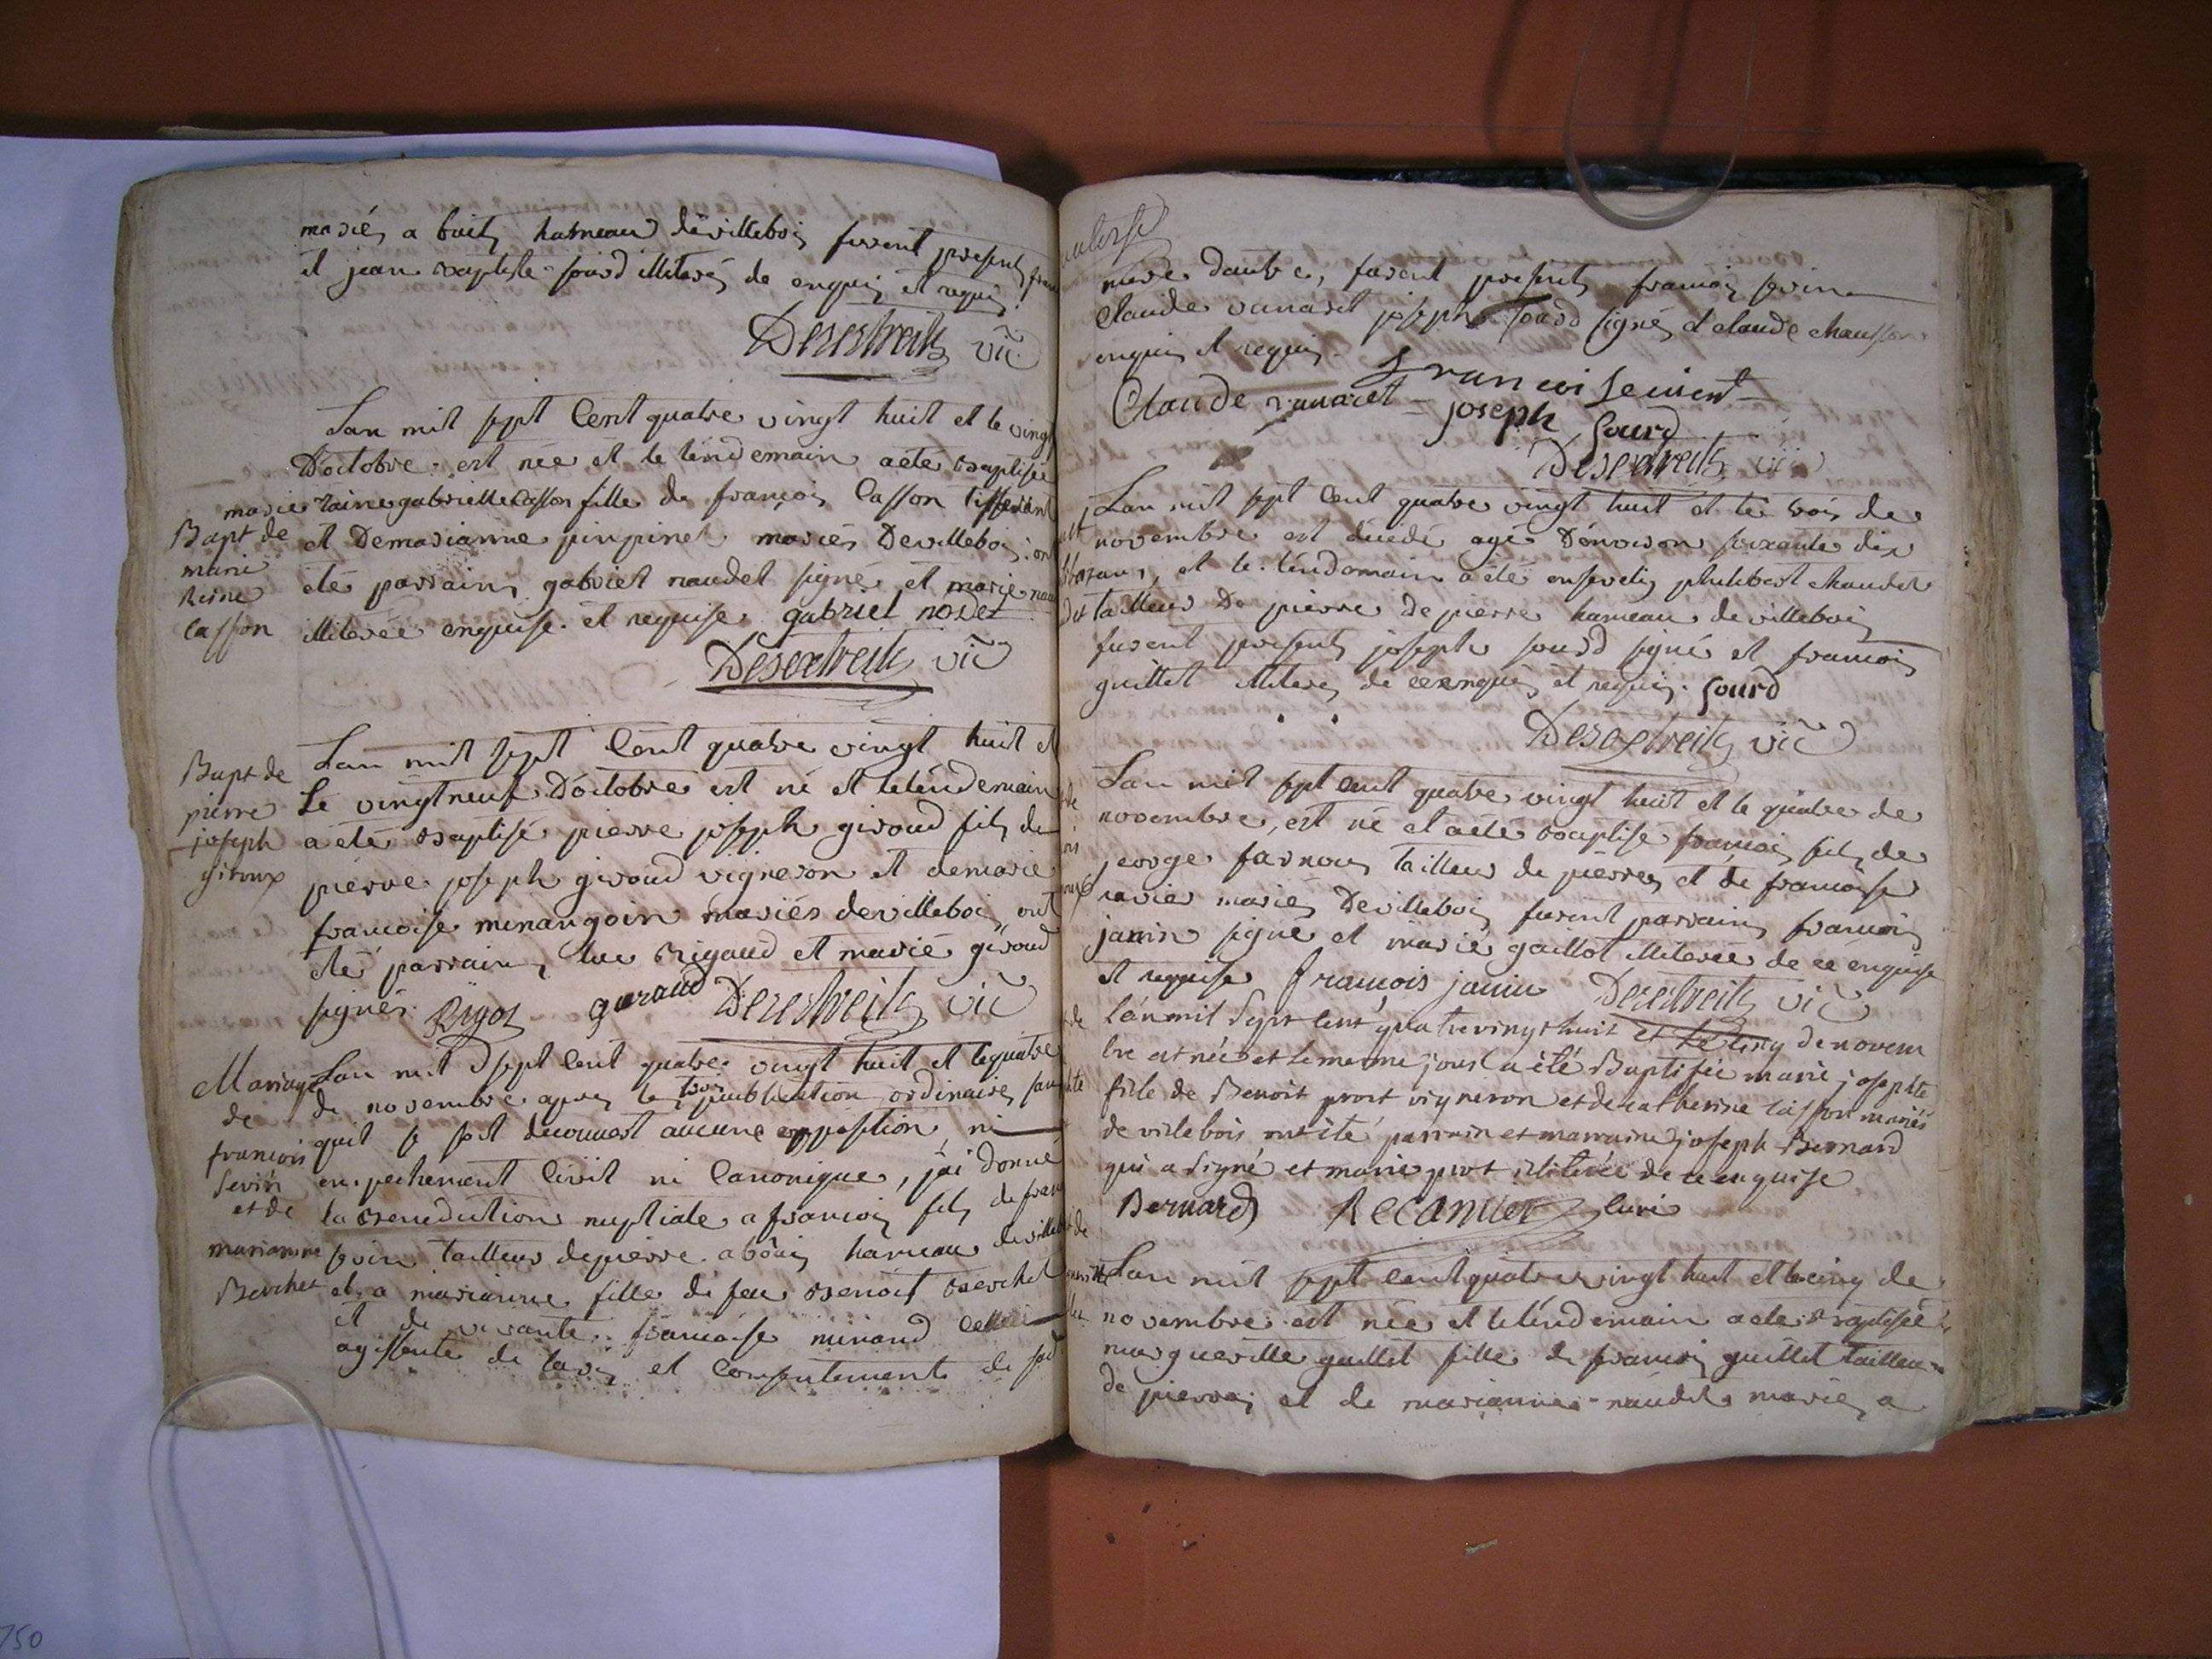 mariés a buis hameau devillebois furent presents
et jean baptiste sourd illiterés de enquis et requis
Desextreits vic
Lan mil sept Cent quatre vingt huit et le vingt
D'octobre est née et le lendemain a eté baptisée
marie raine gabrielle Casson fille de françois Casson tisserand
Bapt de
marie
Reine
Casson
et De marianne pinpinet mariés Devillebois ont
eté parrains gabriel naudet signé et marie
illiterée enquise et requise gabriel nodet
Desextreits vic
Bapt de
pierre
joseph
giroux
Lan mil sept Cent quatre vingt huit et
le vingtneuf D'octobre est né et le lendemain
a eté baptisé pierre joseph giroud fils de
pierre joseph giroud vigneron et de marie
francoise minangoin mariés devillebois ont
eté parrains luc Rigaud et marie giroud
signés Rigot guraud Desextreits vic
Mariage
de
francois
Sevin
et de
marianne
Berchet
Lan mil sept Cent quatre vingt huit et le quatre
de novembre apres les trois publication ordinaires sans
quil se soit decouvert aucune opposition ni
empechement Civil ni Canonique, jai donné
la benediction nuptiale a francois fils de
sevin tailleur de pierre a bouis hameau de
et a marianne fille de feu benoit berchet
et de vivante francoise minand
agissante de lavis et consentement de
mere dautre, furent presents francois sevin
Claude vanaret joseph sourd signés et claude chausson
enquis et requis
Francoi Sevient
Claude vanaret joseph Sourd
Desextreits vic
Lan mil sept Cent quatre vingt huit et le trois de
novembre est décédé agé Denviron soixante dix
ans, et le lendemain a été enseveli philibert chaudet
tailleur De pierre De pierre hameau de villebois
furent presents joseph sourd signé et francois
guillet illiteré de ce enquis et requis. Sourd
Desextreits vic
Lan mil sept cent quatre vingt huit et le quatre de
novembre, est né et a eté baptisé francois fils de
jeorge farnoux tailleur de pierres et de francoise
ravier mariés Devillebois furent parrains francois
janin signé et marie gaillot illiterée de ce enquise
et requise francois janin Desextreits vic
l'an mil Sept Cent quatrevingt huit et le cinq de novem
bre est née et le meme jour a été Baptisée marie josephte
fille de Benoit prost vigneron et de catherine Casson mariés
de villebois ont été parrain et marraine joseph Bernard
qui a signé et marie prost illiterée de ce enquise
Bernard Récamier Curé
Lan mil sept Cent quatre vingt huit et le cinq de
novembre est née et le lendemain a eté baptisée
marguerite guillet fille de francois guillet tailleur
de pierres et de marianne naudet mariés a
750